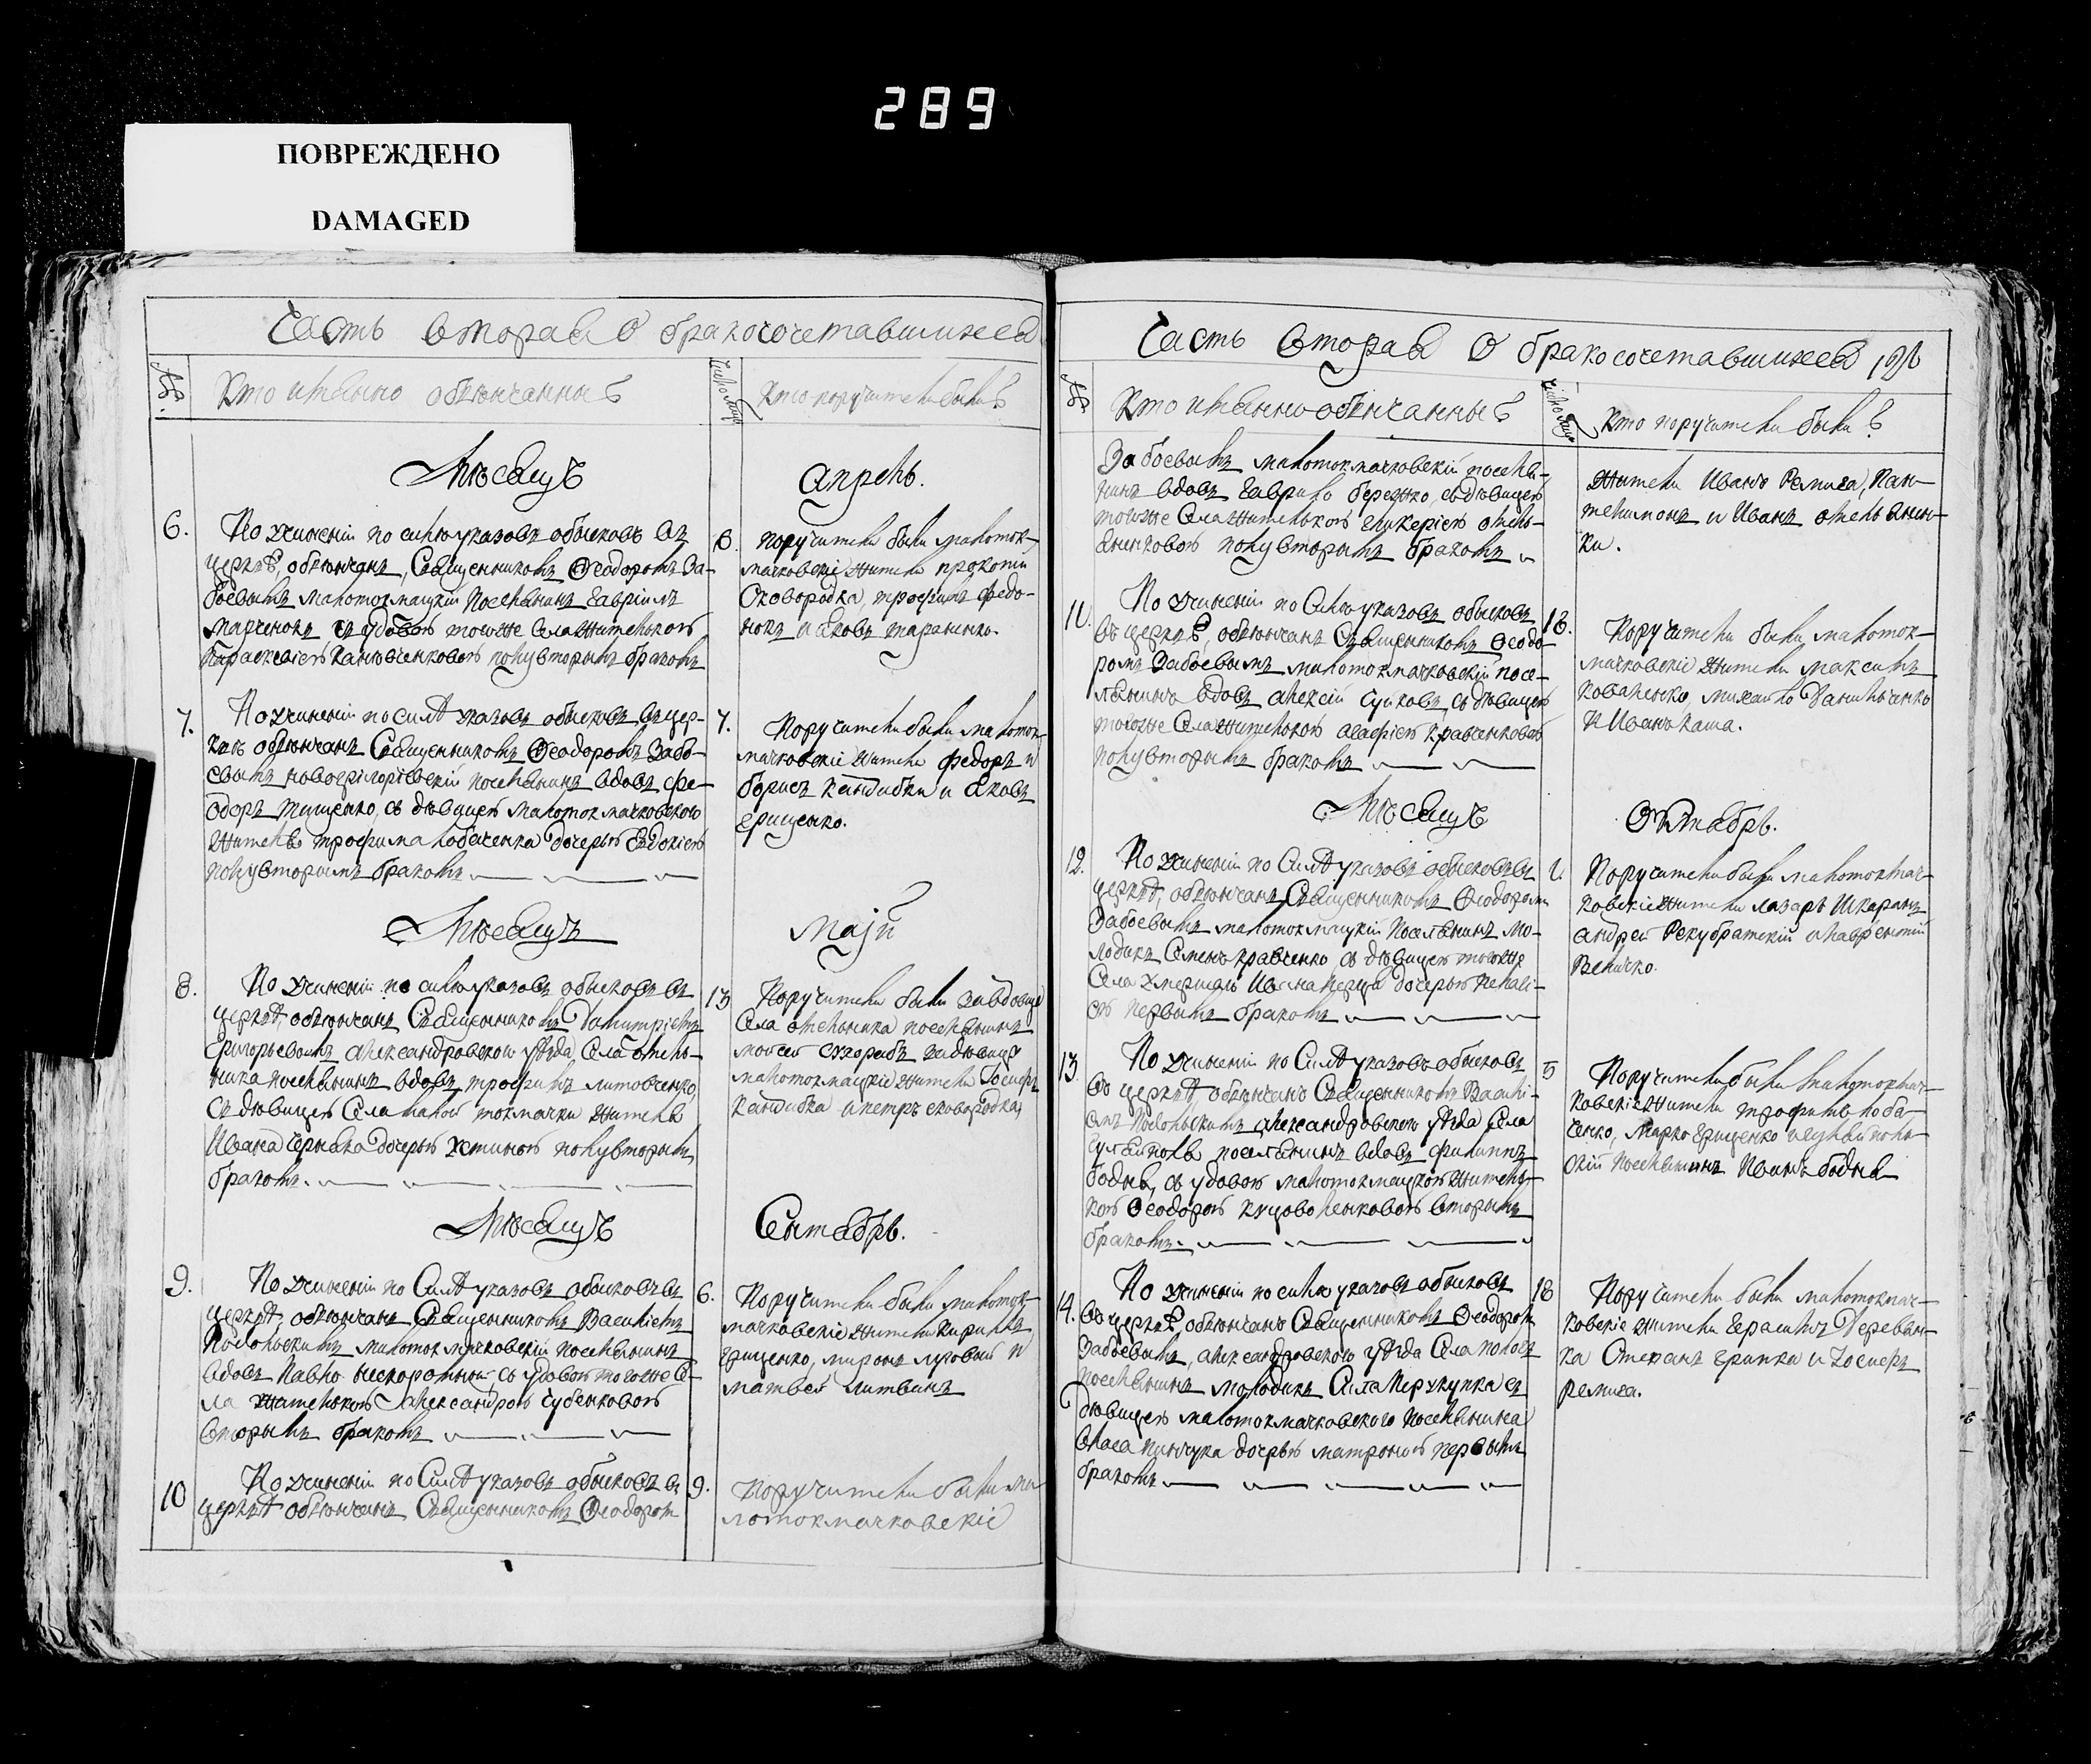 289
ПОВРЕЖДЕНО
DAMAGED
Часть вторая о бракосочетавшихся
Кто имянно обвѣнчанны?
Число
Кто поручители были?
Мѣсяцъ
Апрель.
6.
По учиненіи по силѣ указовъ обысковъ въ
церкве, обвѣнчанъ, Священникомъ Ѳеодоромъ За-
боевымъ малотокмацкій поселянинъ Гавріилъ
марченокъ съ удовою тогожъ села жителькою
Параскевіею полувторымъ бракомъ
8.
Поручители были малоток-
мачковскіе жители прокопъ
Сковородка, трофимъ федо-
нокъ и яковъ тараненко.
7.
По учиненіи по силѣ указовъ обысковъ въ цер-
квѣ обвѣнчанъ Священникомъ Ѳеодоромъ Забо-
евымъ новогригоріевскій поселянинъ вдовъ фе-
одоръ тищенко, съ дѣвицею малотокмачковского
жителя трофима лобаченка дочерью Евдокіею
полувторымъ бракомъ
7.
Поручители были малоток-
мачковскіе жители федоръ и
борисъ кандибки и яковъ
грищенко.
Мѣсяцъ
Маій
8.
По учиненіи по силѣ указовъ обысковъ въ
церквѣ, обвѣнчанъ Священникомъ Димитріемъ
Григорьевымъ александровского уѣзда, села омель-
ника поселянинъ вдовъ трофимъ литовченко,
съ дѣвицею села малой токмачки жителя
Ивана черняка дочерью Устиною полувторымъ
бракомъ.
13
Поручители были за вдовца
села омельника поселянинъ
моисей за дѣвицу
малотокмацкіе жители Іосифъ
кандибка и петръ сковородка,
Мѣсяцъ
Сентябрь.
9.
По учиненіи по силѣ указовъ обысковъ въ
церквѣ, обвѣнчанъ Священникомъ Василіемъ
Подольскимъ малотокмачковскій поселянинъ
вдовъ Павло съ удовою тогожъ се-
ла жителькою Александрою губенковою
вторымъ бракомъ
6.
Поручители были малоток-
мачковскіе жители кирилъ
грищенко, миронъ луговый и
матвей литвинъ
10
По учиненіи по силѣ указовъ обысковъ въ
церквѣ обвѣнчанъ Священникомъ Ѳеодоромъ
9.
Поручители были ма-
лотокмачковскіе
Часть вторая о бракосочетавшихся
Кто имянно обвѣнчанны?
Число
Кто поручители были?
Забоевымъ малотокмачковскій поселя-
нинъ вдовъ Гаврило бережко, съ дѣвицею
тогожъ села жителькою гликеріею омель-
яненковою полувторымъ бракомъ
жители Иванъ Ремига, Пан-
телимонъ и Иванъ омельянен-
ки.
11.
По учиненіи по силѣ указовъ обысковъ
въ церквѣ, обвѣнчанъ Священникомъ Ѳеодо-
ромъ Забоевымъ малотокмачковскій посе-
лянинъ вдовъ алексій суйковъ, съ дѣвицею
тогожъ села жителькою агафіею кравченковою
полувторымъ бракомъ
16.
Поручители были, малоток-
мачковскіе жители максимъ
коваленко, михайло Данильченко
и Иванъ каша.
Мѣсяцъ
Октябрь.
12.
По учиненіи по силѣ указовъ обысковъ въ
церквѣ, обвѣнчанъ Священникомъ Ѳеодоромъ
Забоевымъ малотокмацкій поселянинъ мо-
лодикъ Семенъ кравченко съ дѣвицею тогожъ
села умершаго Ивана дочерью Пелагі-
ею первымъ бракомъ
2.
Поручители были малотокмач-
ковскіе жители лазарь Шкаранъ
андрей Рекубратскій и лаврентій
Величко.
13.
По учиненіи по силѣ указовъ обысковъ
въ церквѣ, обвѣнчанъ Священникомъ Василі-
емъ Подольскимъ александровского уѣзда села
гуляйполя поселянинъ вдовъ филиппъ
бодня, съ удовою малотокмацкою житель-
кою Ѳеодорою вторымъ
бракомъ.
5
Поручители были малотокмач-
ковскіе жители трофимъ лоба-
ченко, Марко грищенко и гуляйполь-
скій поселянинъ Иванъ бодня
14.
По учиненіи по силѣ указовъ обысковъ
въ церквѣ обвѣнчанъ Священникомъ Ѳеодоромъ
Забоевымъ, александровского уѣзда села пологъ
поселянинъ молодикъ съ
дѣвицею малотокмачковского поселянина
власа дочерью матроною первымъ
бракомъ
18
Поручители были малотокмач-
ковскіе жители герасимъ Деревян-
ка Степанъ грипка и Іосифъ
ремига.